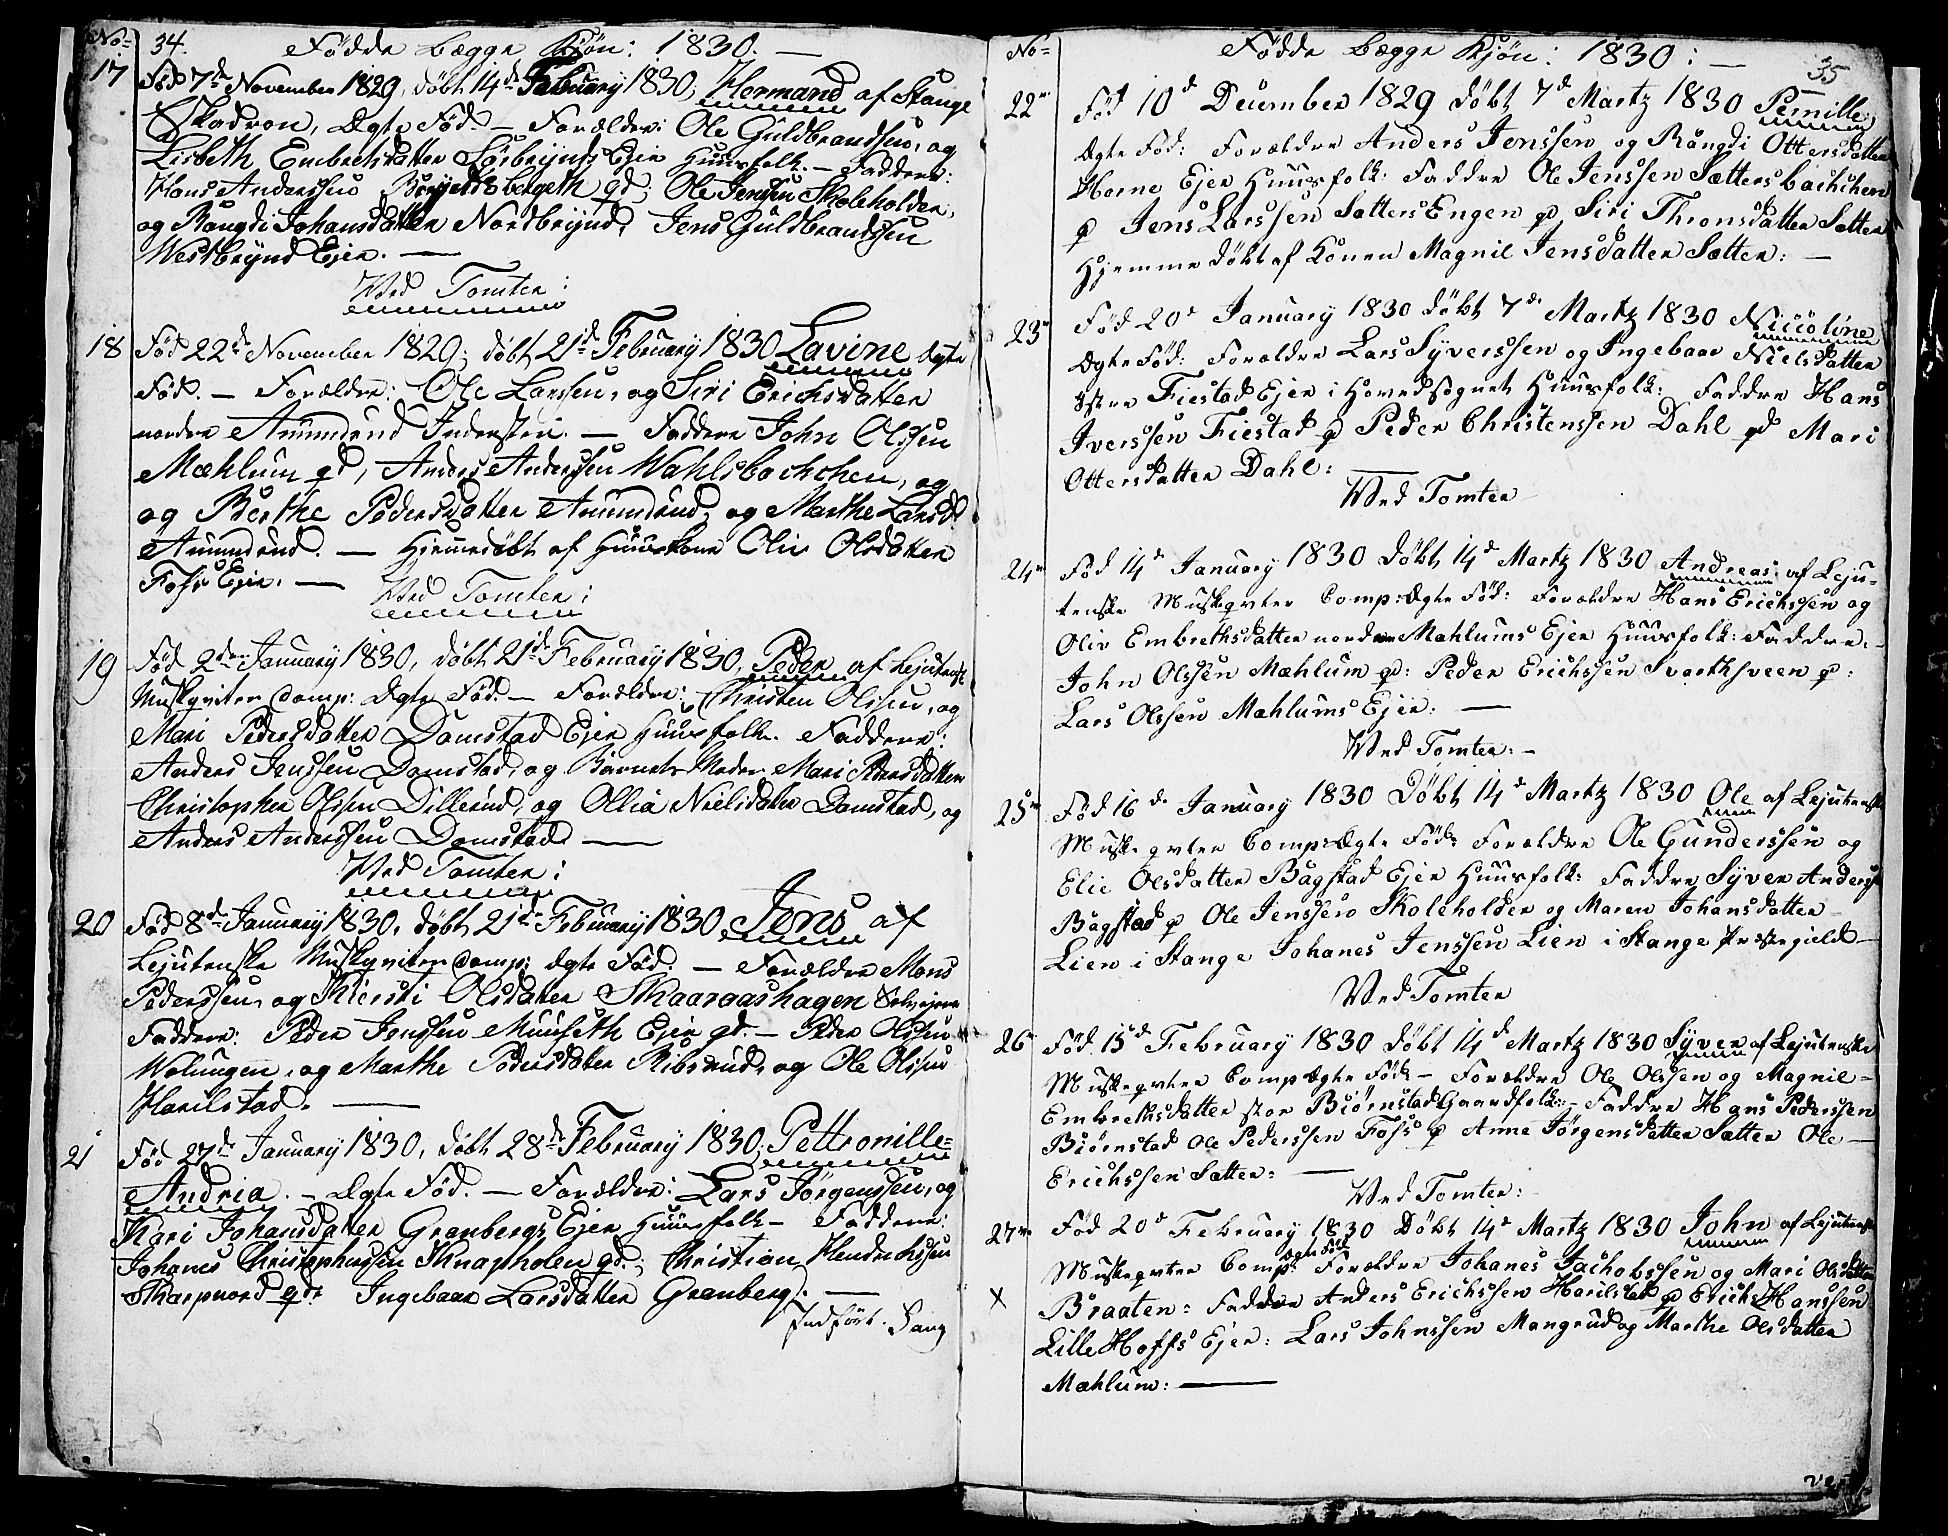 No= 34. Fødde begge Kjøn: 1830. —
17 Fød 7de November 1829, døbt 14de February 1830, Hermand af Stange
Eskadron, Ægte Fød. — Forældre: Ole Guldbrandsen, og
Lisbeth Embretsdatter Sørbrynds Eier Huusfolk. — Faddere:
Hans Anderssen gd; Ole Jenssen Skoleholder,
og Rangdi Johansdatter Nordbrynd, Jens Guldbrandssen
Westbrynd Ejer. —
Ved Tomter:
18 Fød 22de November 1829; døbt 21de February 1830 Lavine Ægte
Fød. — Forældre: Ole Larssen, og Siri Erichsdatter
nordre Amundrud Inderster. — Faddere John Olssen
Mæhlum gd, Anders Anderssen Wahlsbachchen, og
og Berthe Pedersdatter Amundrud, og Marthe Larsd:
Amundrud. — Hjemmedøbt af Huuskone Oliv Olsdatter
Fofs Ejer. —
Ved Tomter:
19 Fød 2de January 1830, døbt 21de February 1830, Peder af Lejutensk
Muskqviter Comp: Ægte Fød. — Forældre: Christen Olssen, og
Mari Pedersdatter Domstad Ejer Huusfolk. Faddere:
Anders Jenssen Domstad, og Barnets Moder Mari Pedersdatter
Christopher Olssen Dillerud, og Ollia Nielsdatter Domstad, og
Anders Anderssen Domstad —
Ved Tomter:
20 Fød 8de January 1830, døbt 21de February 1830 Jens af
Lejutenske Muskqviter Comp: Ægte Fød. — Forældre Mons
Pederssen, og Kiersti Olsdatter Skaaraashagen Selvejere
Faddere: Peder Jenssen Muuseth Ejer gd. — Peder Olssen
Wolungen, og Marthe Pedersdatter Ribsrud, og Ole Olssen
Harilstad. —
21 Fød 27de January 1830, døbt 28de February 1830, Pettronille=
Andria. — Ægte Fød. — Forældre: Lars Jørgenssen, og
Kari Johansdatter Granbergs Ejer Huusfolk — Faddere:
Johanes Christophersen Knapholen gd; Christian Hendrichssen
Skarpnord gd: Ingebaar Larsdatter Granberg. —
Indført. Sang
No= Fødde begge Kjøn: 1830: — 35
22 Fød 10d December 1829 døbt 7d Martz 1830 Pernille,
Ægte Fød: Forældre Anders Jenssen og Rangdi Ottersdatter
Horne Ejer Huusfolk: Faddre Ole Jenssen Sættersbachchen
g Jens Larssen SættersEngen gd Siri Thronsdatter Sætter
Hjemme døbt af Konen Magnil Jensdatter Sætter: —
23 Fød 20d January 1830 døbt 7d Martz 1830 Niccoline
Ægte Fød: Forældre Lars Syverssen og Ingebaar Nielsdatter
østre Fiestad Ejer i Hovedsognet Huusfolk: Faddre Hans
Iverssen Fiestad g Peder Christenssen Dahl gd Mari
Ottersdatter Dahl: —
Ved Tomter
24 Fød 14d January 1830 døbt 14d Martz 1830 Andreas af Leju-
tenske Muskqvter Comp: Ægte Fød: Forældre Hans Erichssen og
Oliv Embrethsdatter nordre Mæhlums Ejer Huusfolk: Faddre:
John Olssen Mæhlum gd: Peder Erichssen Svarthsveen g:
Lars Olssen Mæhlums Ejer: —
Ved Tomter: —
25 Fød 16d January 1830 døbt 14d Martz 1830 Ole af Lejutenske
Muskqvter Comp: Ægte Fød: Forældre Ole Gunderssen og
Elie Olsdatter Bagstad Ejer Huusfolk: Faddre Syver Anderss
Bagstad g Ole Jenssen Skoleholder og Maren Johansdatter
Lien i Stange Johanes Jenssen Lien i Stange Præstegield
Ved Tomter
26 Fød 15d February 1830 døbt 14d Martz 1830 Syver af Lejutenske
Muskqvter Comp Ægte Fød — Forældre Ole Olssen og Magnil
Embrethsdatter stor Biørnstad Gaardfolk: — Faddre Hans Pederssen
Biørnstad Ole Pederssen Fofs g Anne Jørgensdatter Sætter Ole —
Erichssen Sætter: —
Ved Tomter:
27 Fød 20d February 1830 døbt 14d Martz 1830 John af Lejutenske
Muskqvter Comp: Ægte Fød Forældre Johanes Jachobssen og Mari Olsdatter
X Braaten: Faddre Anders Erichssen Harilstad g Erich Hanssen
Lille Hoffs Ejer: Lars Johnssen Mangrud og Marthe Olsdatter
Mæhlum: —